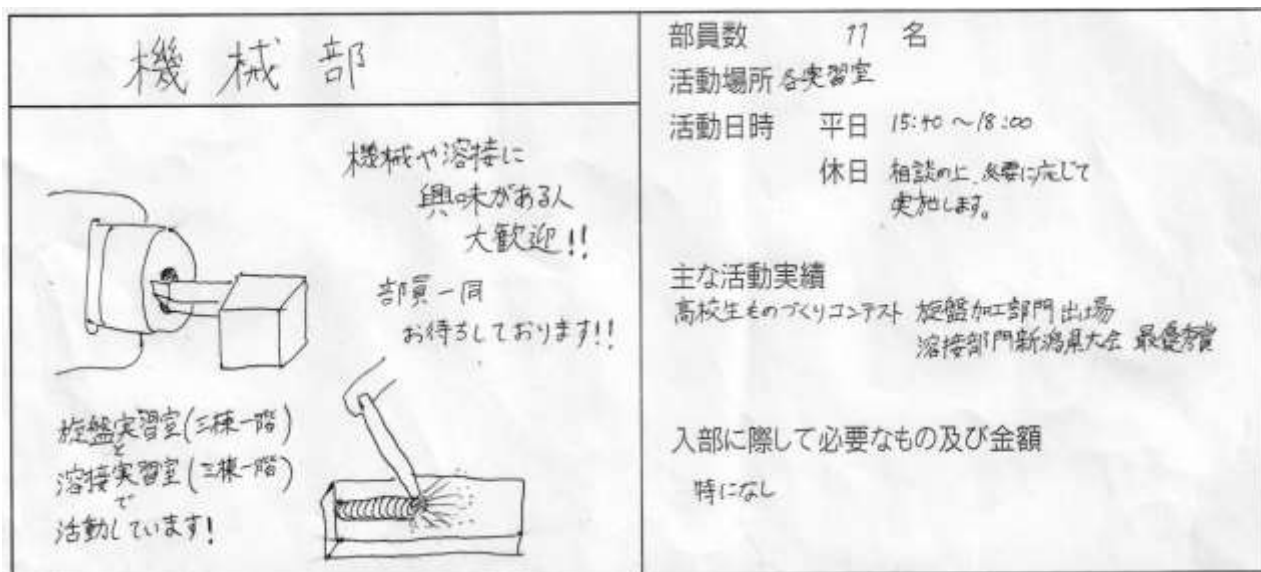 機械部
機械や溶接に
興味がある人
大歓迎!!
部員一同
お待ちしております!!
旋盤実習室(三棟一階)
と
溶接実習室(三棟一階)
で
活動しています!
部員数 11 名
活動場所 各実習室
活動日時 平日 15:40~18:00
休日 相談の上、必要に応じて
実施します。
主な活動実績
高校生ものづくりコンテスト 旋盤加工部門 出場
溶接部門新潟県大会 最優秀賞
入部に際して必要なもの及び金額
特になし